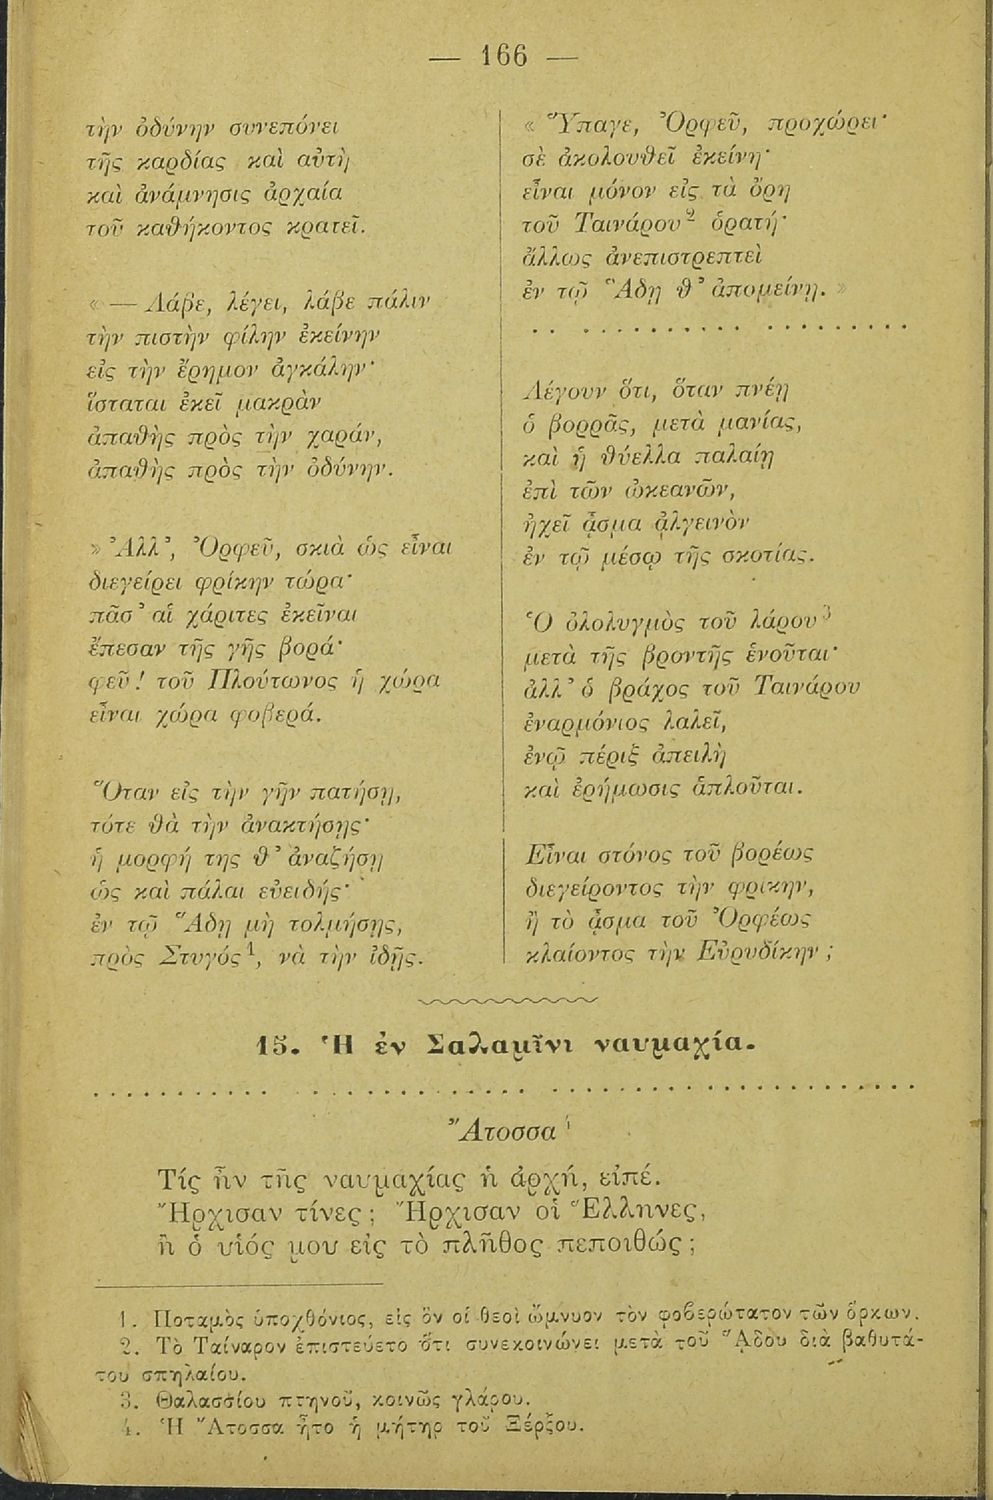 — 166 —
τὴν ὀδύνην συνεπόνει
τῆς καρδίας καὶ αὐτὴ
καὶ ἀνάμνησις ἀρχαία
τοῦ καθήκοντος κρατεῖ.
« — Λάβε, λέγει, λάβε πάλιν
τὴν πιστὴν φίλην ἐκείνην
εἰς τὴν ἔρημον ἀγκάλην·
ἵσταται ἐκεῖ μακρὰν
ἀπαθὴς πρὸς τὴν χαράν,
ἀπαθὴς πρὸς τὴν ὀδύνην.
» Ἀλλ᾽, Ὀρφεῦ, σκιὰ ὡς εἶναι
διεγείρει φρίκην τώρα·
πᾶσ᾽ αἱ χάριτες ἐκεῖναι
ἔπεσαν τῆς γῆς βορά·
φεῦ! τοῦ Πλούτωνος ἡ χώρα
εἶναι χώρα φοβερά.
Ὅταν εἰς τὴν γῆν πατήσῃ,
τότε θὰ τὴν ἀνακτήσῃς·
ἡ μορφή της θ᾽ ἀναζήσῃ
ὡς καὶ πάλαι εὐειδής·
ἐν τῷ Ἅδῃ μὴ τολμήσῃς,
πρὸς Στυγός¹, νὰ τὴν ἰδῇς.
« Ὕπαγε, Ὀρφεῦ, προχώρει·
σὲ ἀκολουθεῖ ἐκείνη·
εἶναι μόνον εἰς τὰ ὄρη
τοῦ Ταινάρου² ὁρατή·
ἄλλως ἀνεπιστρεπτεὶ
ἐν τῷ Ἅδῃ θ᾽ ἀπομείνῃ. »
. . . . . . . . . . . . . . . . . . . .
Λέγουν ὅτι, ὅταν πνέῃ
ὁ βορρᾶς, μετὰ μανίας,
καὶ ἡ θύελλα παλαίῃ
ἐπὶ τῶν ὠκεανῶν,
ἠχεῖ ᾆσμα ἀλγεινὸν
ἐν τῷ μέσῳ τῆς σκοτίας.
Ὁ ὀλολυγμὸς τοῦ λάρου³
μετὰ τῆς βροντῆς ἑνοῦται·
ἀλλ᾽ ὁ βράχος τοῦ Ταινάρου
ἐναρμόνιος λαλεῖ,
ἐνῷ πέριξ ἀπειλὴ
καὶ ἐρήμωσις ἁπλοῦται.
Εἶναι στόνος τοῦ βορέως
διεγείροντος τὴν φρίκην,
ἢ τὸ ᾆσμα τοῦ Ὀρφέως
κλαίοντος τὴν Εὐρυδίκην ;
15. Ἡ ἐν Σαλαμῖνι ναυμαχία.
. . . . . . . . . . . . . . . . . . . . . . . . . . . . . . . . . . . . . . . .
Ἄτοσσα⁴
Τίς ἦν τῆς ναυμαχίας ἡ ἀρχή, εἰπέ.
Ἤρχισαν τίνες ; Ἤρχισαν οἱ Ἕλληνες,
ἢ ὁ υἱός μου εἰς τὸ πλῆθος πεποιθώς ;
1. Ποταμὸς ὑποχθόνιος, εἰς ὃν οἱ θεοὶ ὤμνυον τὸν φοβερώτατον τῶν ὅρκων.
2. Τὸ Ταίναρον ἐπιστεύετο ὅτι συνεκοινώνει μετὰ τοῦ Ἅδου διὰ βαθυτά-
του σπηλαίου.
3. Θαλασσίου πτηνοῦ, κοινῶς γλάρου.
4. Ἡ Ἄτοσσα ἦτο ἡ μήτηρ τοῦ Ξέρξου.